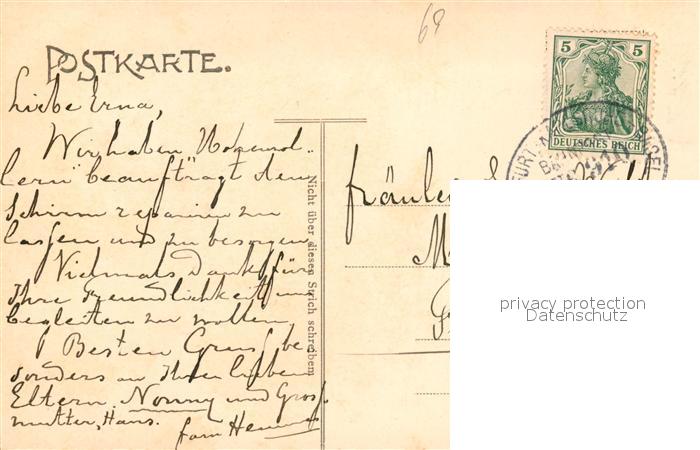 68
POSTKARTE.
Liebe Erna,
Wir haben Hohenzol-
lern beauftragt den
Schirm reparieren zu
lassen und zu besorgen
Vielmals Dank für
Ihre Freundlichkeit uns
begleiten zu wollen
Besten Gruss be
sonders an Ihren lieben
Eltern, Nonny und Gross
mutter, Hans.
fam
Nicht über diesen Strich schreiben
5 5
DEUTSCHES REICH
Fräulein
privacy protection
Datenschutz